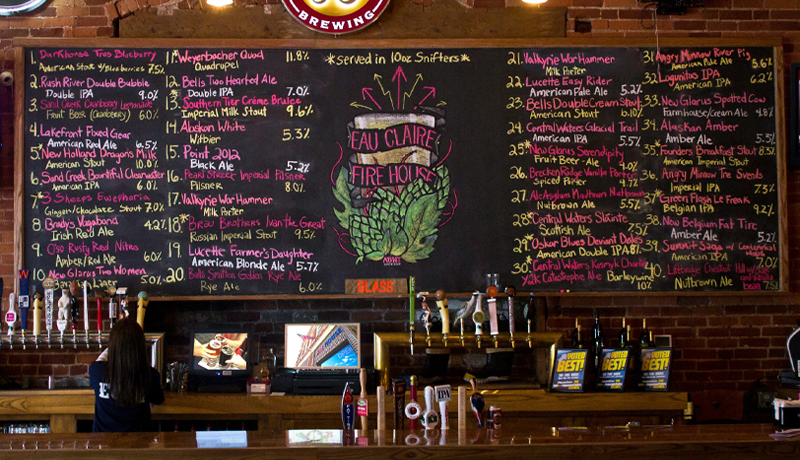 BREWING
1. Darkhorse Tres Blueberry
American Stout w/Blueberries 7.5%
2. Rush River Double Bubble
Double IPA 9.0%
3. Sand Creek Cranberry Lemonade
Fruit Beer (Cranberry) 6.0%
4. Lakefront Fixed Gear
American Red Ale 6.5%
5. New Holland Dragons Milk
American Stout 10.0%
6. Sand Creek Bountiful Clearwater
American IPA 6.0%
7. 3 Sheeps
Ginger/Chocolate Stout 7.0%
8. Bradys Vagabond
Irish Red Ale 4.2%
9. Oso Rusty Red Nitro
Amber/Red Ale 6.0%
10. New Glarus Two Women
11. Weyerbacher Quad
Quadrupel 11.8%
12. Bells Two Hearted Ale
Double IPA 7.0%
13. Southern Tier Crème Brulee
Imperial Milk Stout 9.6%
14. Alaskan White
Witbier 5.3%
15. Point 2012
Black Ale 5.2%
16. Pearl Street Imperial Pilsner
Pilsner 8.0%
17. Valkyrie War Hammer
Milk Porter
18. Brau Brothers Ivan the Great
Russian Imperial Stout 9.5%
19. Lucette Farmer's Daughter
American Blonde Ale 5.7%
20. Rye Ale 6.0%
*served in 10oz Snifters*
EAU CLAIRE
FIRE HOUSE
GLASS
21. Valkyrie War Hammer
Milk Porter
22. Lucette Easy Rider
American Pale Ale 5.2%
23. Bells Double Cream Stout
American Stout 6.10%
24. Central Waters Glacial Trail
American IPA 5.5%
25. New Glarus Serendipity
Fruit Beer - Ale 4.0%
26. Breckenridge Vanilla Porter
Spiced Porter 4.7%
27. Ale Asylum Madtown Nutbrown
Nutbrown Ale 5.5%
28. Central Waters
Scottish Ale 7.5%
29. Oskar Blues Deviant Dales
American Double IPA 8%
30. Central Waters Kosmyk Charlie
Y2K Catastrophe Ale Barleywine
10%
31. Angry Minnow River Pig
American Pale Ale 5.6%
32. Lagunitas IPA
American IPA 6.2%
33. New Glarus Spotted Cow
Farmhouse/Cream Ale 4.8%
34. Alaskan Amber
Amber Ale 5.5%
35. Founders Breakfast Stout 8.3%
American Imperial Stout
36. Angry Minnow Tre Svends
Imperial IPA 7.5%
37. Green Flash Le Freak
Belgian IPA 9.2%
38. New Belgium Fat Tire
Amber 5.2%
39. Summit Saga w/
American IPA
40. Leftbridge Chestnut Hill
Nutbrown Ale 7.5%
VOTED
BEST!
VOTED
BEST!
VOTED
BEST!
IPA